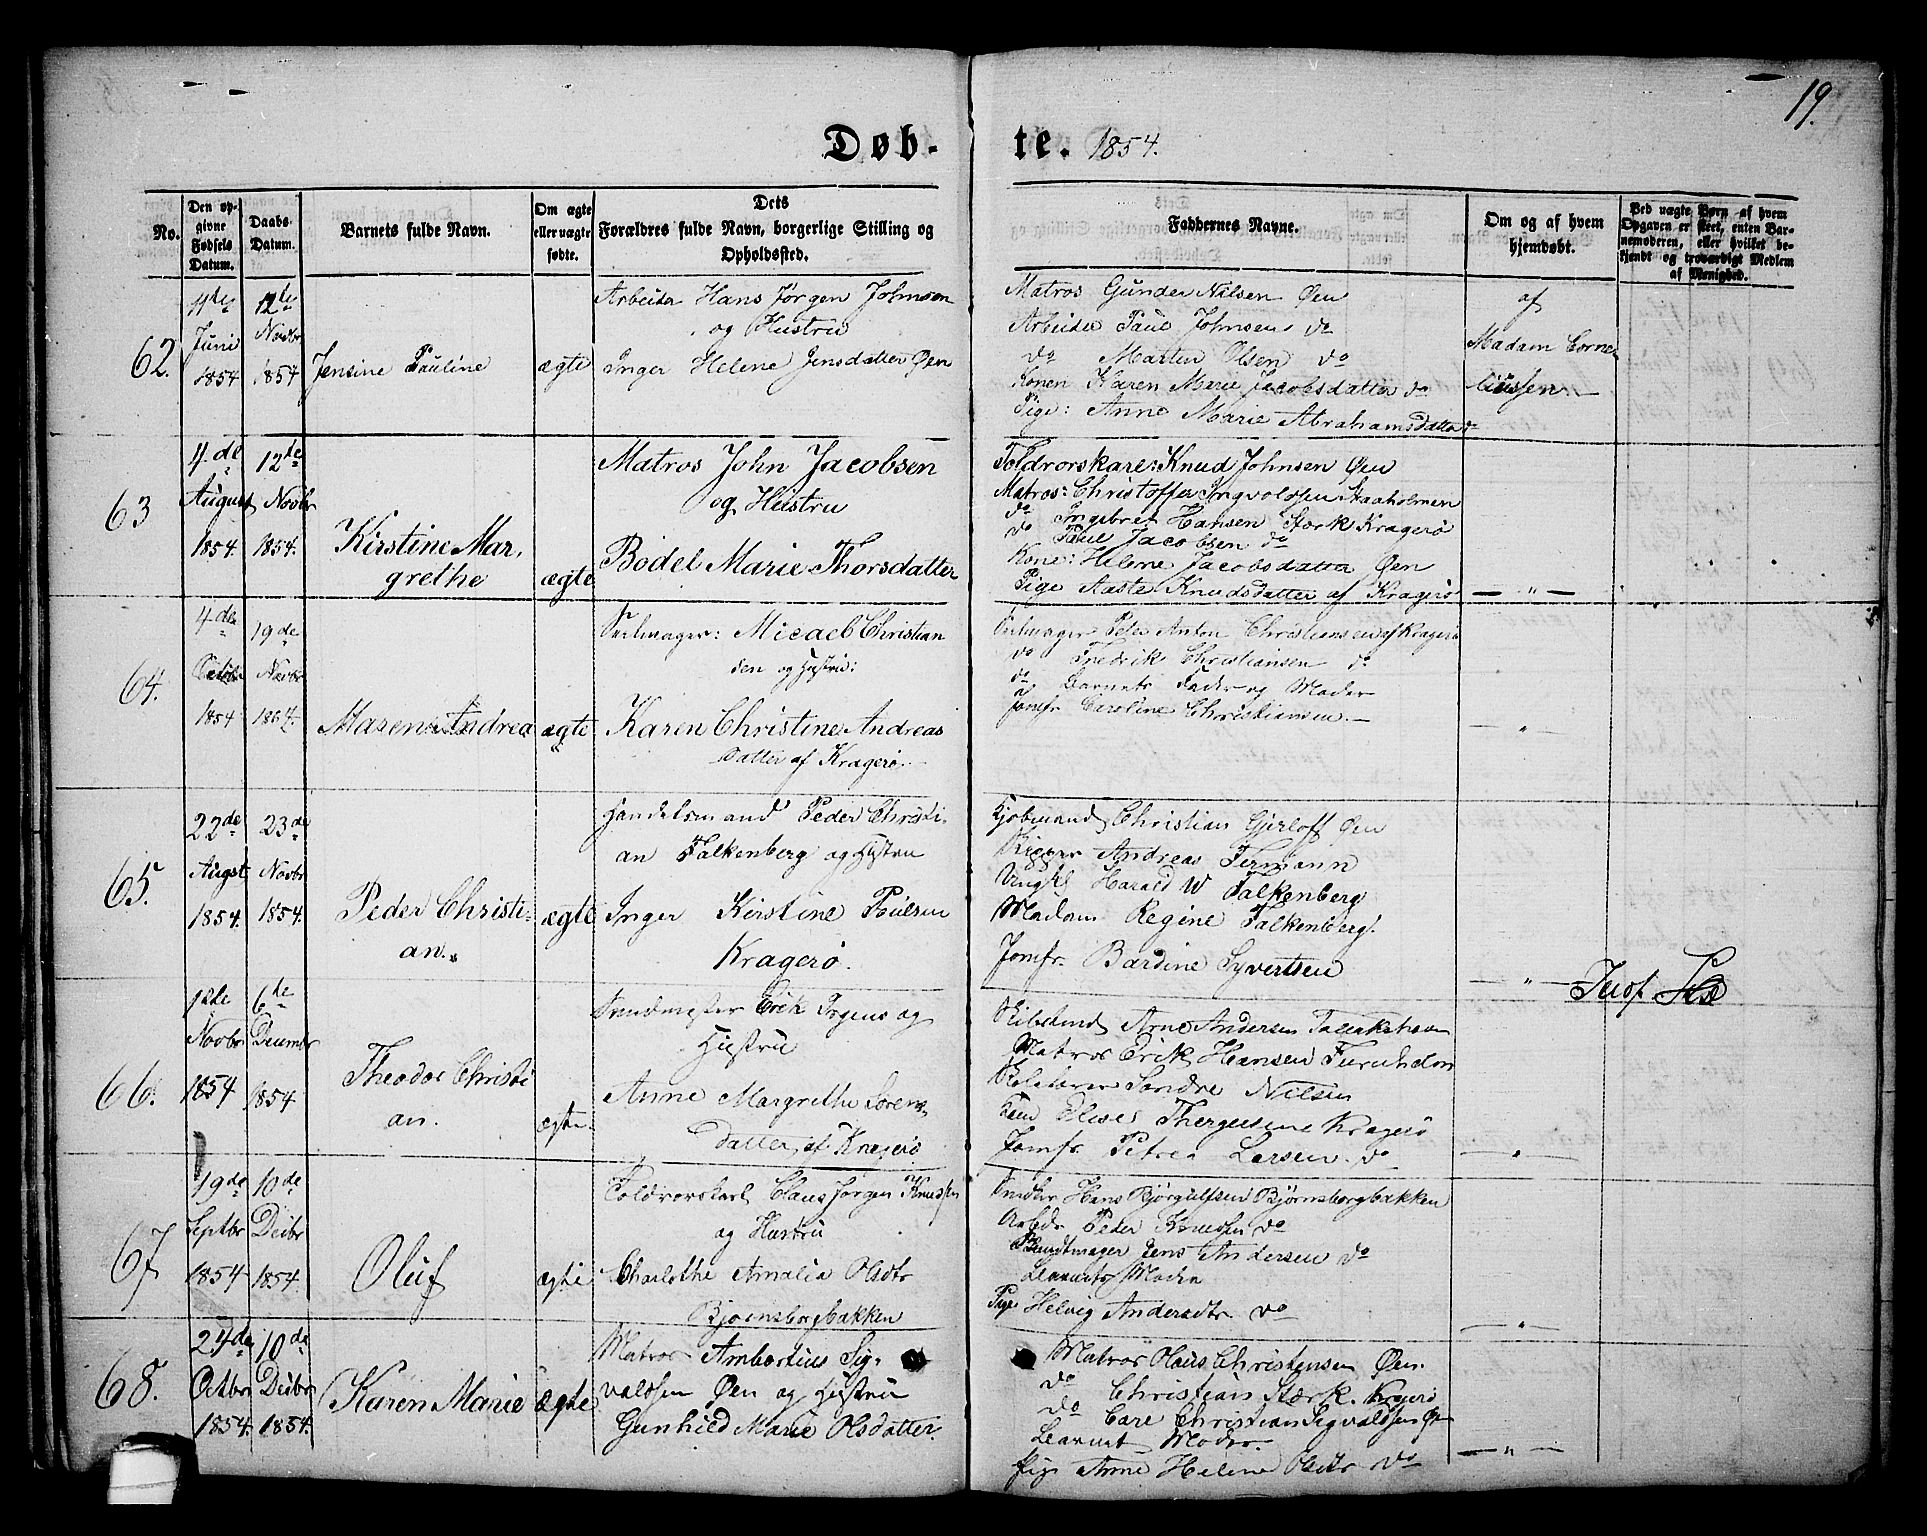 19.
Døb-te. 1854.
No.
Den op-
givne
Fødsels
Datum.
Daabs-
Datum.
Barnets fulde Navn.
Om ægte
eller uægte
fødte.
Dets
Forældres fulde Navn, borgerlige Stilling og
Opholdssted.
Faddernes Navne.
Om og af hvem
hjemdøbt.
Ved uægte Børn af hvem
Opgaven er skeet, enten Bar-
nemoderen, eller hvilket be-
kjendt og troværdigt Medlem
af Menighed.
62.
11te
Juni
1854
12te
Novbr
1854
Jensine Pauline
ægte
Arbeider Hans Jørgen Johnsen
og Hustru
Inger Helene Jensdatter Øen
Matros Gunder Nilsen Øen
Arbeider Paul Johnsen do
do Martin Olsen do
Konen Karen Marie Jacobsdatter do
Pige: Anne Marie Abrahamsdatter do
af
Madam Corne-
liussen.
63
4de
August
1854.
12te
Novbr
1854.
Kirstine Mar,
grethe
ægte
Matros John Jacobsen
og Hustru
Bodel Marie Thorsdatter
Toldrorskarl: Knud Johnsen Øen
Matros: Christoffer Ingvoldsen Staaholmen
do Ingebret Hansen Stærk Kragerø
do Paul Jacobsen do
Kone: Helene Jacobsdatter Øen
Pige Aaste Knudsdatter af Kragerø
— " —
64.
4de
1854
19de
Novbr
1864.
Maren Andrea
ægte
Seilmager: Micael Christian
sen og Hustru:
Karen Christine Andreas
Datter af Kragerø
Seilmager Peter Anton Christiansen af Kragerø
do Fredrik Christiansen do
do Barnets Fader og Moder
Jomfr Caroline Christiansen.
— " —
65.
22de
Augst
1854.
23de
Novbr
1854.
Peder Christi-
an.
ægte
Handelsmand Peder Christi-
an Falkenberg og Hustru
Inger Kirstine Poulsen
Kragerø.
Kjøbmand Christian Gjerloff Øen
Andreas Termann
Ungkl Harald W Falkenberg
Madam Regine Falkenberg.
Jomfr. Bardine Syvertsen
— " —
66.
12de
Novbr
1854
6de
Decmbr
1854
Theodor Christi
an.
ægte.
Erik Irgens og
Hustru
Anne Margrethe Sorens,
Datter, af Kragerø
Arne Andersen
Matros Erik Hansen Furuholm
Sondre Nilsen
Elise Thergersene Kragerø
Jomfr Petrea Larsen. do
— " —
67
19de
Septbr
1854
10de
Decbr
1854.
Oluf
ægte
Toldrorskarl Claus Jørgen Knudsen
og Hustru
Charlothe Amalia Olsdtr
Bjoensborgbakken
Hans Bjørgulfsen Bjørnsborgbakken
Arbdr Peder Knudsen do
Bundtmager Jens Andersen do
Barnets Moder
Pige Helvig Andersdtr do
— " —
68.
24de
Octbr
1854.
10de
Decbr
1854.
Karen Marie
ægte
Matros Ambortius Sig-
valdsen Øen og Hustru
Gunhild Marie Olsdatter.
Matros Olaus Christensen Øen.
do Christian Stærk. Kragerø
do Carl Christian Sigvaldsen Øen
Barnet Moder.
Pige Anne Helene Olsdtr do
— " —